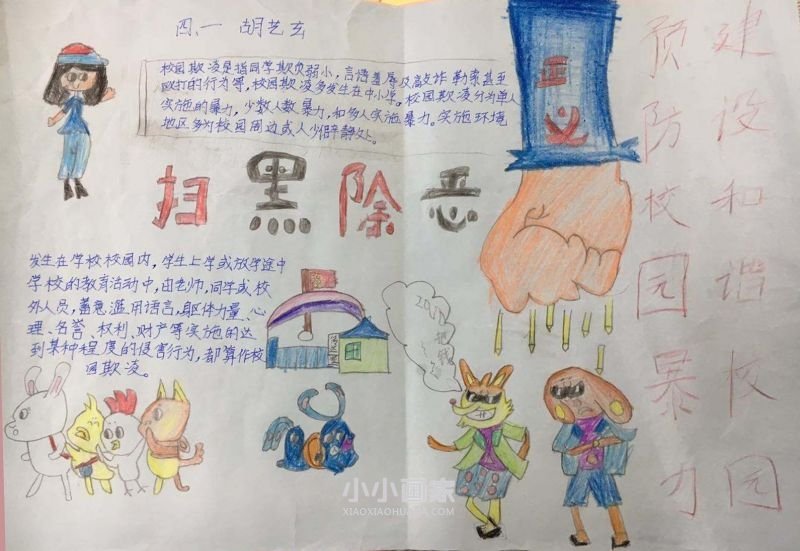 四.一 胡艺玄
校园欺凌是指同学欺负弱小,言语羞辱及敲诈勒索甚至
殴打的行为等,校园欺凌多发生在中小学。校园欺凌分为单人
实施的暴力,少数人数暴力,和多人实施暴力。实施环境
地区多为校园周边或人少僻静处。
正义
扫黑除恶
发生在学校校园内,学生上学或放学途中
学校的教育活动中,由老师,同学或校
外人员,蓄意滥用语言,躯体力量、心
理、名誉、权利、财产等实施的达
到某种程度的侵害行为,都算作校
园欺凌。
建设和谐校园
预防校园暴力
小小画家
XIAOXIAOHUAJIA.COM